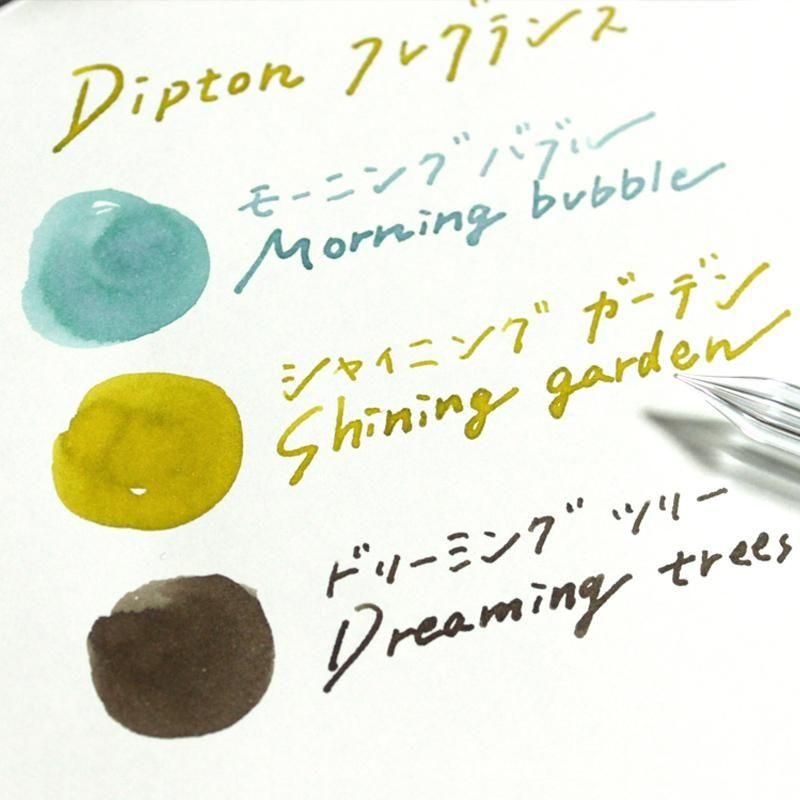 Dipton フレグランス
モーニングバブル
Morning bubble
シャイニング ガーデン
Shining garden
ドリーミング ツリー
Dreaming trees